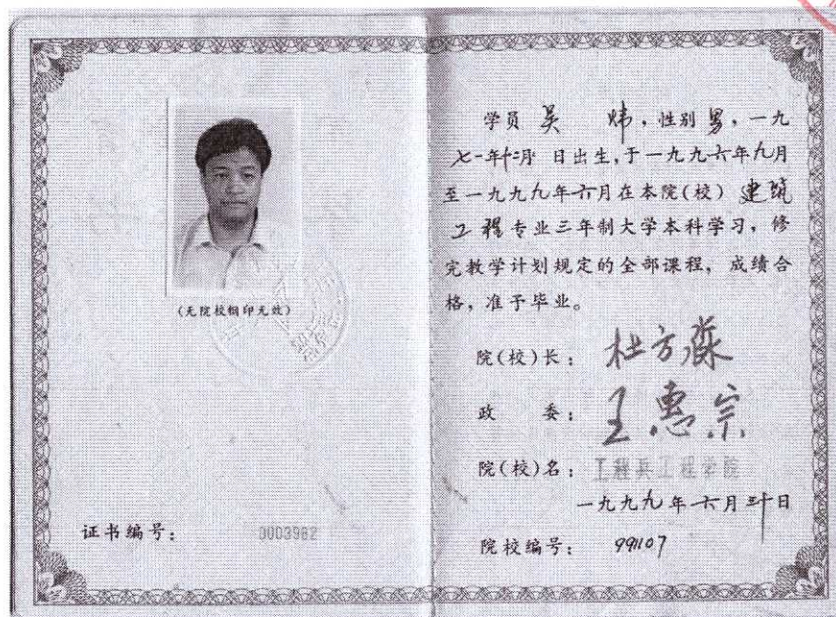 (无院校钢印无效)
证书编号： 0003982
学员 吴 炜，性别男，一九
七一年十二月 日出生，于一九九六年九月
至一九九九年六月在本院(校) 建筑
工程专业三年制大学本科学习，修
完教学计划规定的全部课程，成绩合
格，准予毕业。
院(校)长： 杜方淼
政 委： 王惠宗
院(校)名： 工程兵工程学院
一九九九年六月三十日
院校编号： 991107